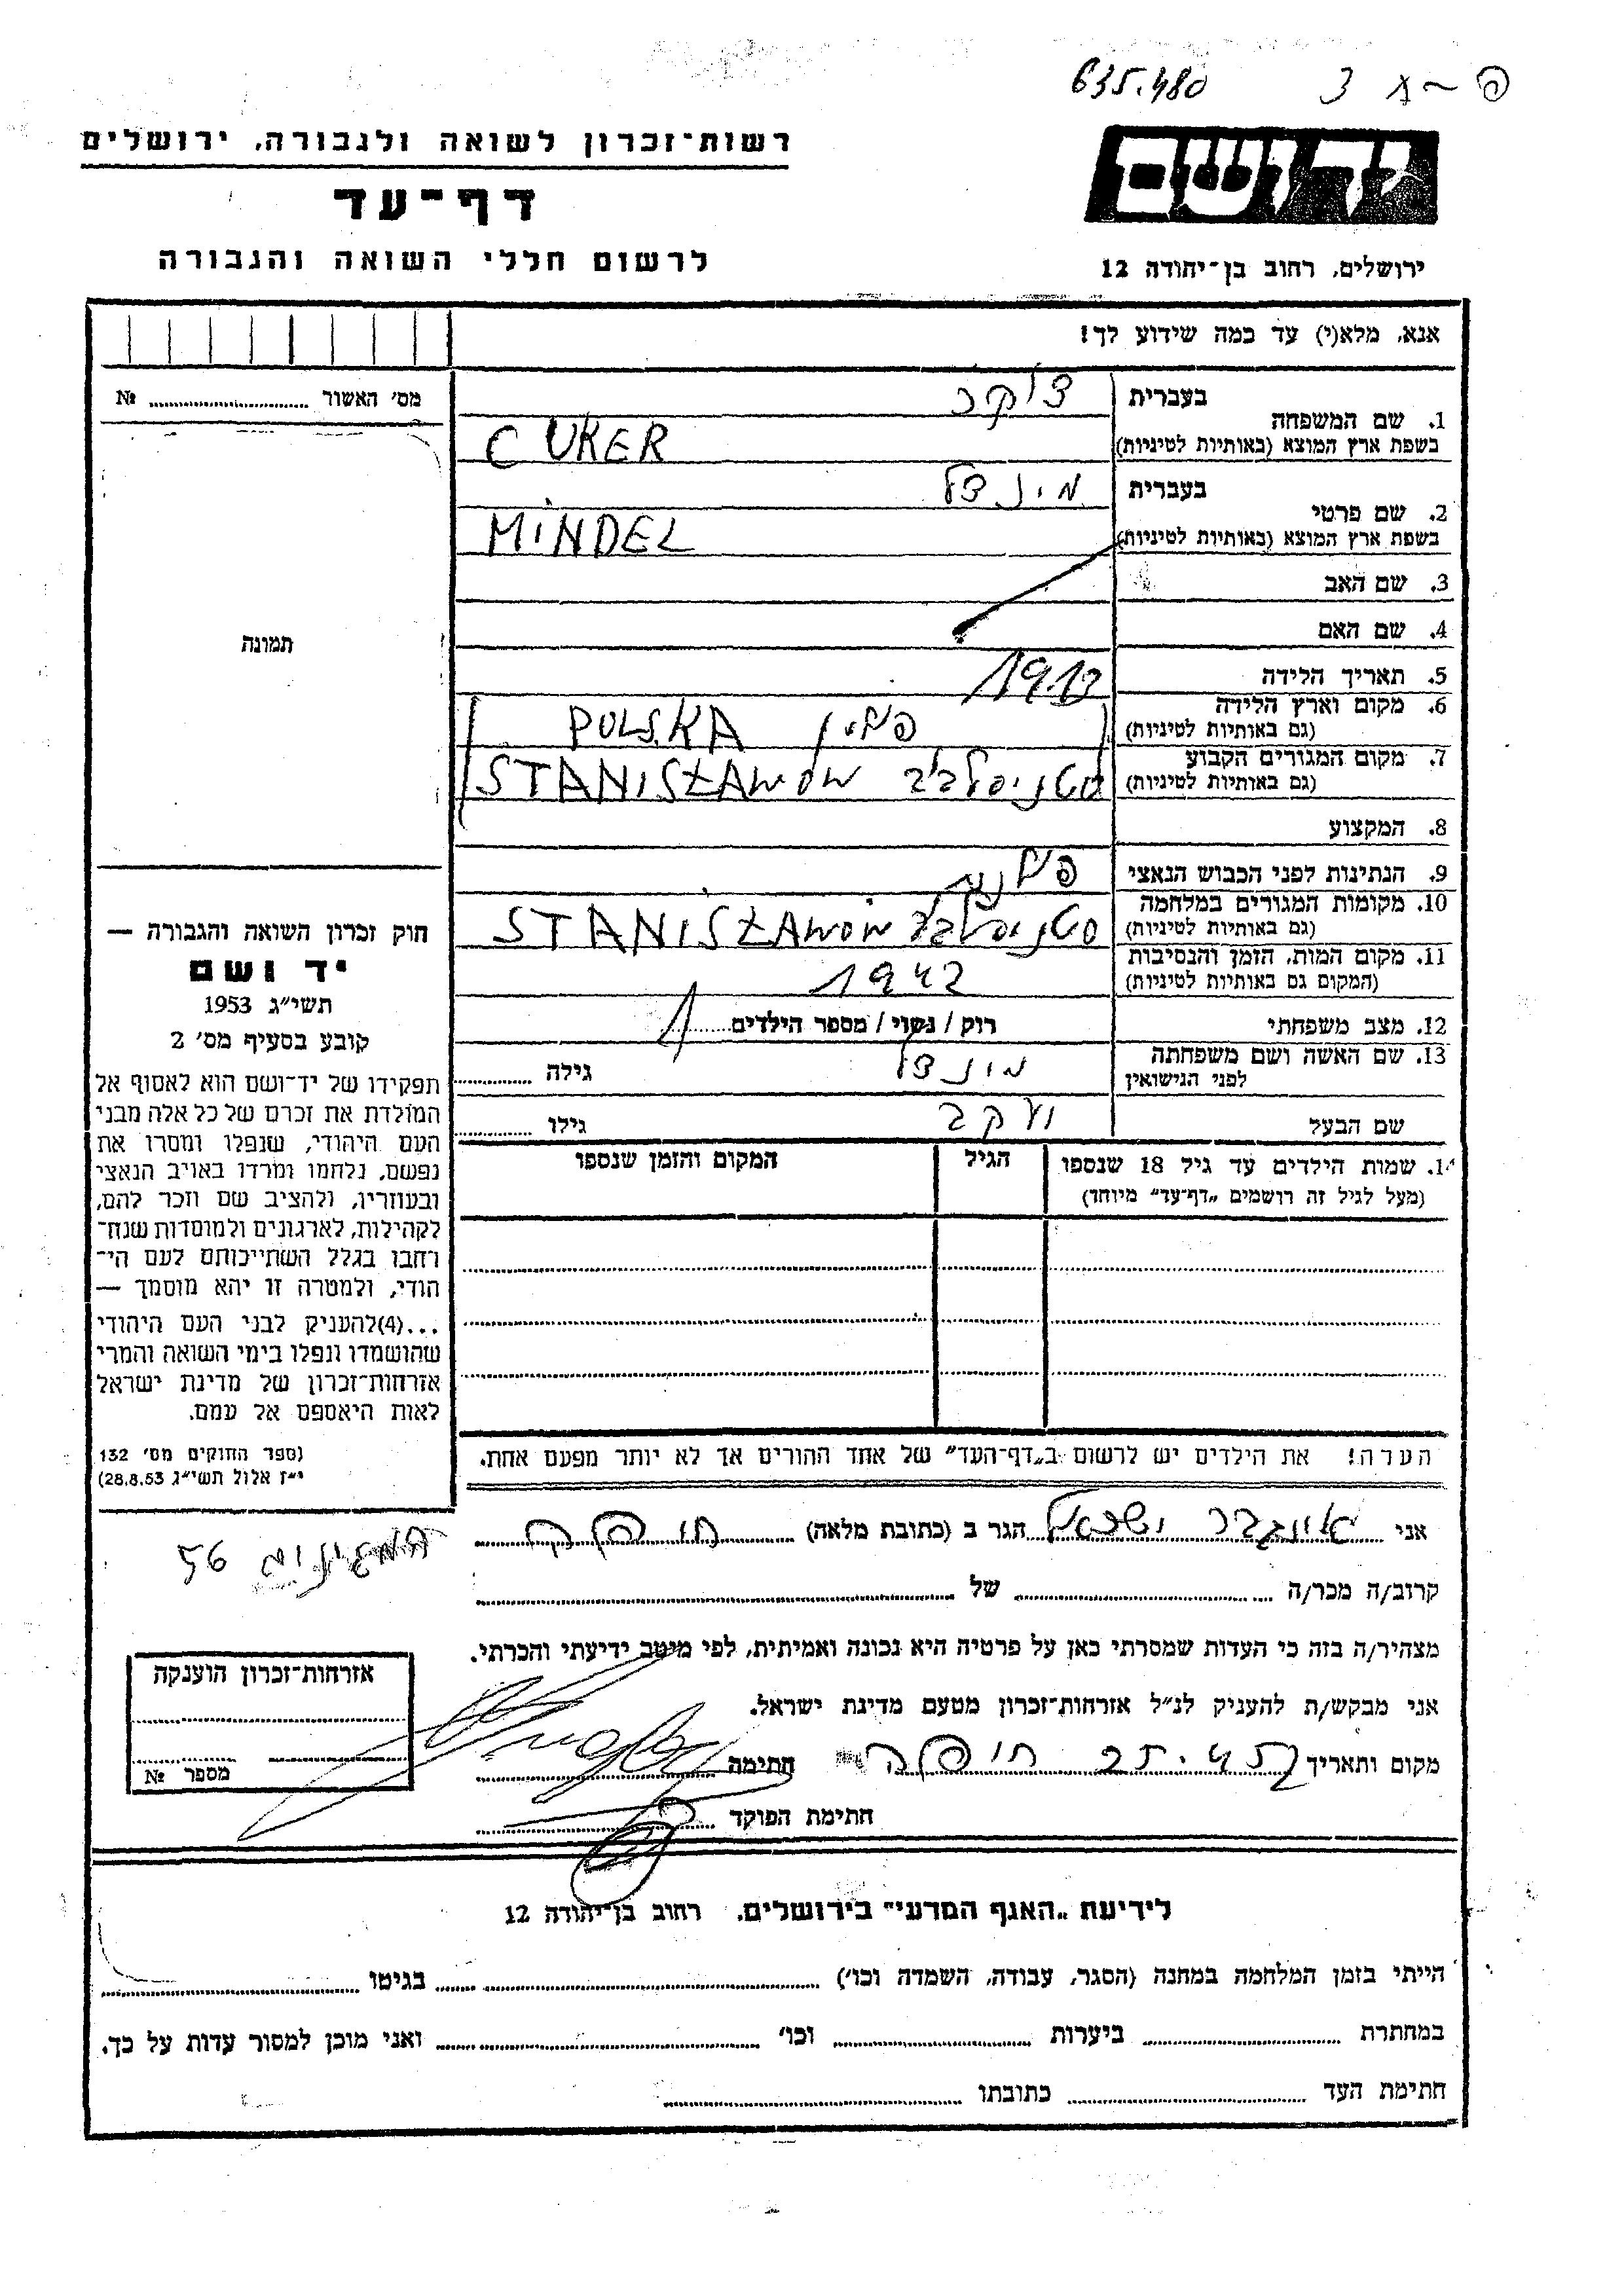 635.480
רשות־זכרון לשואה ולגבורה, ירושלים
דף־עד
לרשום חללי השואה והגבורה
יד ושם
ירושלים, רחוב בן־יהודה 12
אנא, מלא(י) עד כמה שידוע לך!
מס׳ האשור № 
בעברית צוקר
1. שם המשפחה
בשפת ארץ המוצא (באותיות לטיניות) CUKER
בעברית מינדל
2. שם פרטי
בשפת ארץ המוצא (באותיות לטיניות) MINDEL
3. שם האב
4. שם האם
5. תאריך הלידה
6. מקום וארץ הלידה פולין POLSKA
(גם באותיות לטיניות)
7. מקום המגורים הקבוע סטניסלבוב STANISŁAWOW
(גם באותיות לטיניות)
8. המקצוע
9. הנתינות לפני הכבוש הנאצי פולנית
10. מקומות המגורים במלחמה סטניסלבוב STANISŁAWOW
(גם באותיות לטיניות)
11. מקום המות, הזמן והנסיבות 1942
(המקום גם באותיות לטיניות)
12. מצב משפחתי רוק / נשוי / מספר הילדים 1
13. שם האשה ושם משפחתה
לפני הנישואין מינדל גילה
שם הבעל יעקב גילו
14. שמות הילדים עד גיל 18 שנספו הגיל המקום והזמן שנספו
(מעל לגיל זה רושמים „דף־עד״ מיוחד)
הערה! את הילדים יש לרשום ב„דף־העד״ של אחד ההורים אך לא יותר מפעם אחת.
תמונה
חוק זכרון השואה והגבורה —
יד ושם
תשי״ג 1953
קובע בסעיף מס׳ 2
תפקידו של יד־ושם הוא לאסוף אל
המולדת את זכרם של כל אלה מבני
העם היהודי, שנפלו ומסרו את
נפשם, נלחמו ומרדו באויב הנאצי
ובעוזריו, ולהציב שם וזכר להם,
לקהילות, לארגונים ולמוסדות שנח־
רחבו בגלל השתייכותם לעם הי־
הודי, ולמטרה זו יהא מוסמך —
...(4)להעניק לבני העם היהודי
שהושמדו ונפלו בימי השואה והמרי
אזרחות־זכרון של מדינת ישראל
לאות היאספם אל עמם.
(ספר החוקים מס׳ 132
י״ז אלול תשי״ג 28.8.53)
אני ישראל הגר ב (כתובת מלאה)
56
קרוב/ה מכר/ה של
מצהיר/ה בזה כי העדות שמסרתי כאן על פרטיה היא נכונה ואמיתית, לפי מיטב ידיעתי והכרתי.
אני מבקש/ת להעניק לנ״ל אזרחות־זכרון מטעם מדינת ישראל.
מקום ותאריך חתימה
חתימת הפוקד
אזרחות־זכרון הוענקה
מספר №
לידיעת „האגף המדעי״ בירושלים, רחוב בן־יהודה 12
הייתי בזמן המלחמה במחנה (הסגר, עבודה, השמדה וכו׳) בגיטו
במחתרת ביערות וכו׳ ואני מוכן למסור עדות על כך.
חתימת העד כתובתו